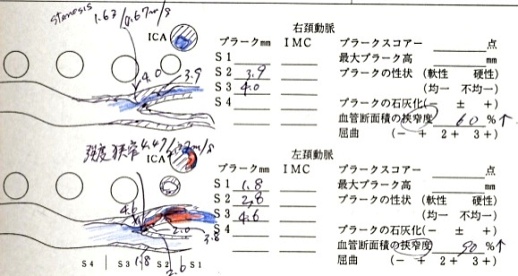 stenosis
1.67/0.67m/s
右頚動脈
ICA
プラークmm IMC プラークスコアー 点
S1 最大プラーク高 mm
S2 3.9 プラークの性状 (軟性 硬性)
S3 4.0 (均一 不均一)
S4 プラークの石灰化(− ± +)
血管断面積の狭窄度 60 %↑
屈曲 (− + 2+ 3+)
4.0
3.9
強度狭窄 4.47 m/s
左頚動脈
ICA
プラークmm IMC プラークスコアー 点
S1 1.8 最大プラーク高 mm
S2 2.8 プラークの性状 (軟性 硬性)
S3 4.6 (均一 不均一)
S4 プラークの石灰化(− ± +)
血管断面積の狭窄度 90 %↑
屈曲 (− + 2+ 3+)
2.0
S4 S3 1.8 S2 S1